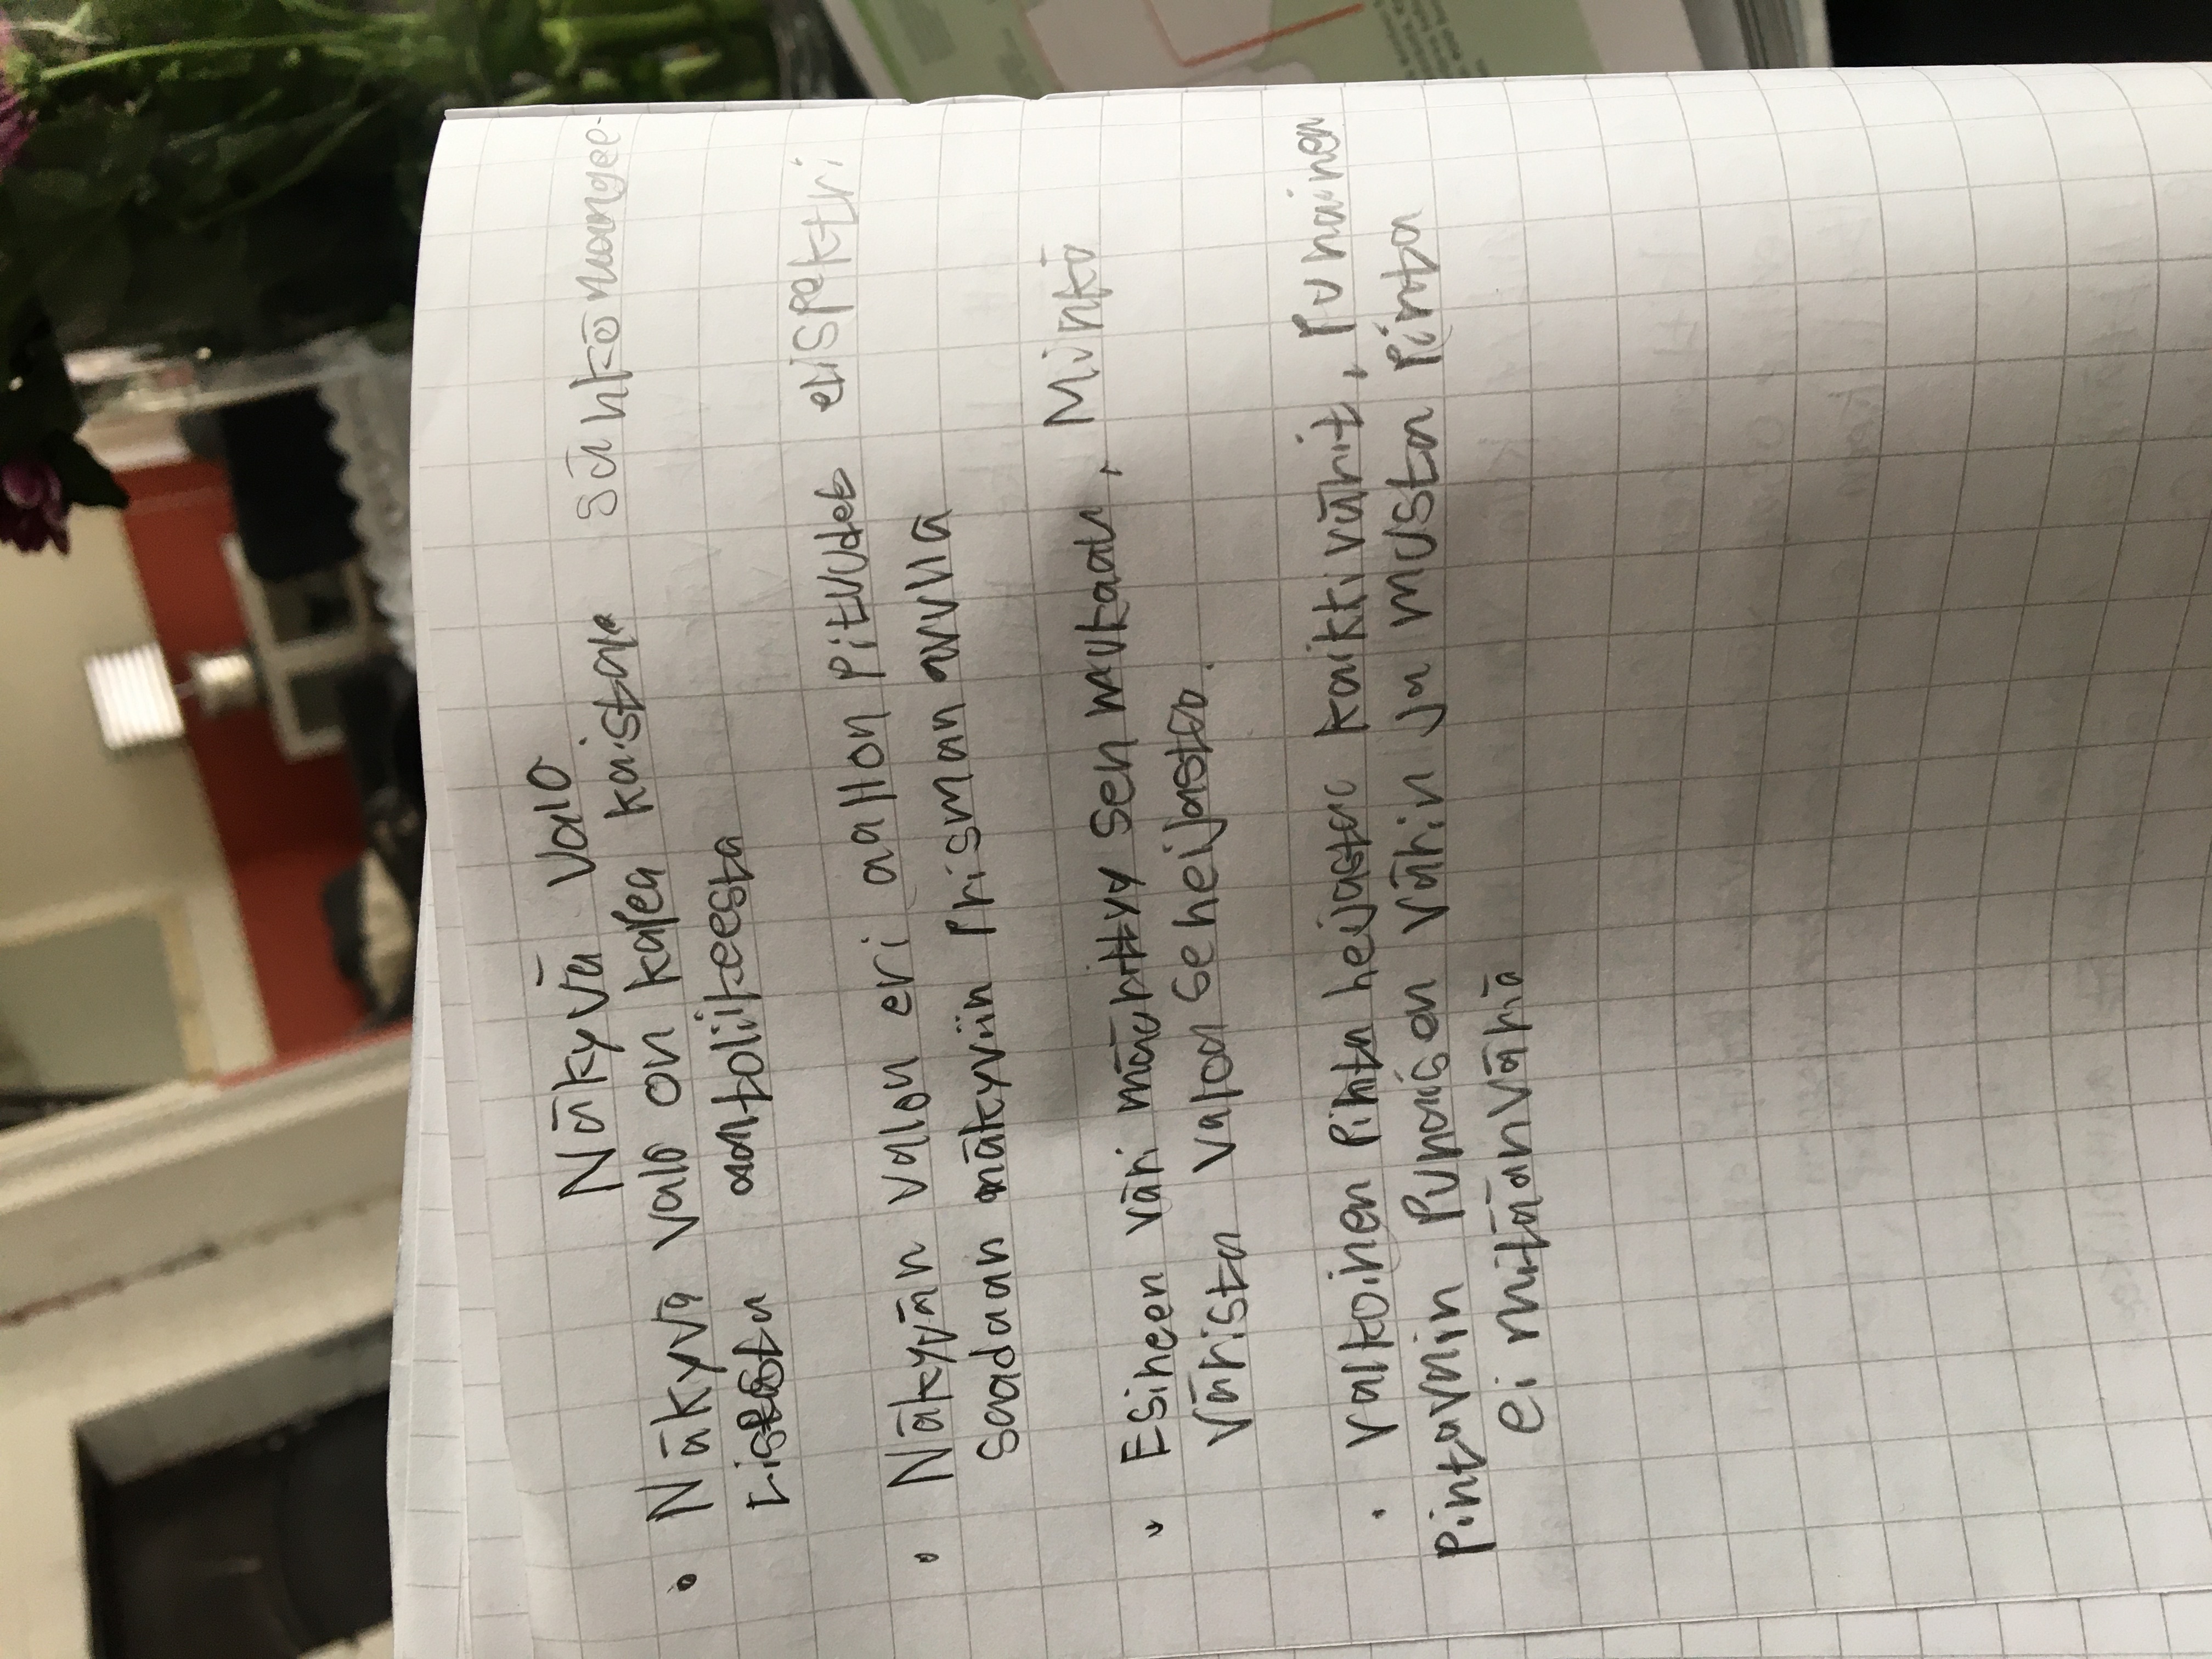 Näkyvä valo
• Näkyvä valo on kapea kaistale sähkömangee-
tistista aaltoliikeesta
• Näkyvän valon eri aallon pituudet eli spektri
saadaan näkyviin prisman avulla
• Esineen väri määrittyy sen mukaan, Minkä
Väristä valoa se heijastaa.
• Valkoinen pinta heijastac kaikki värit, Punainen
pinta vain punaisen värin ja musta pinta
ei mitään väriä